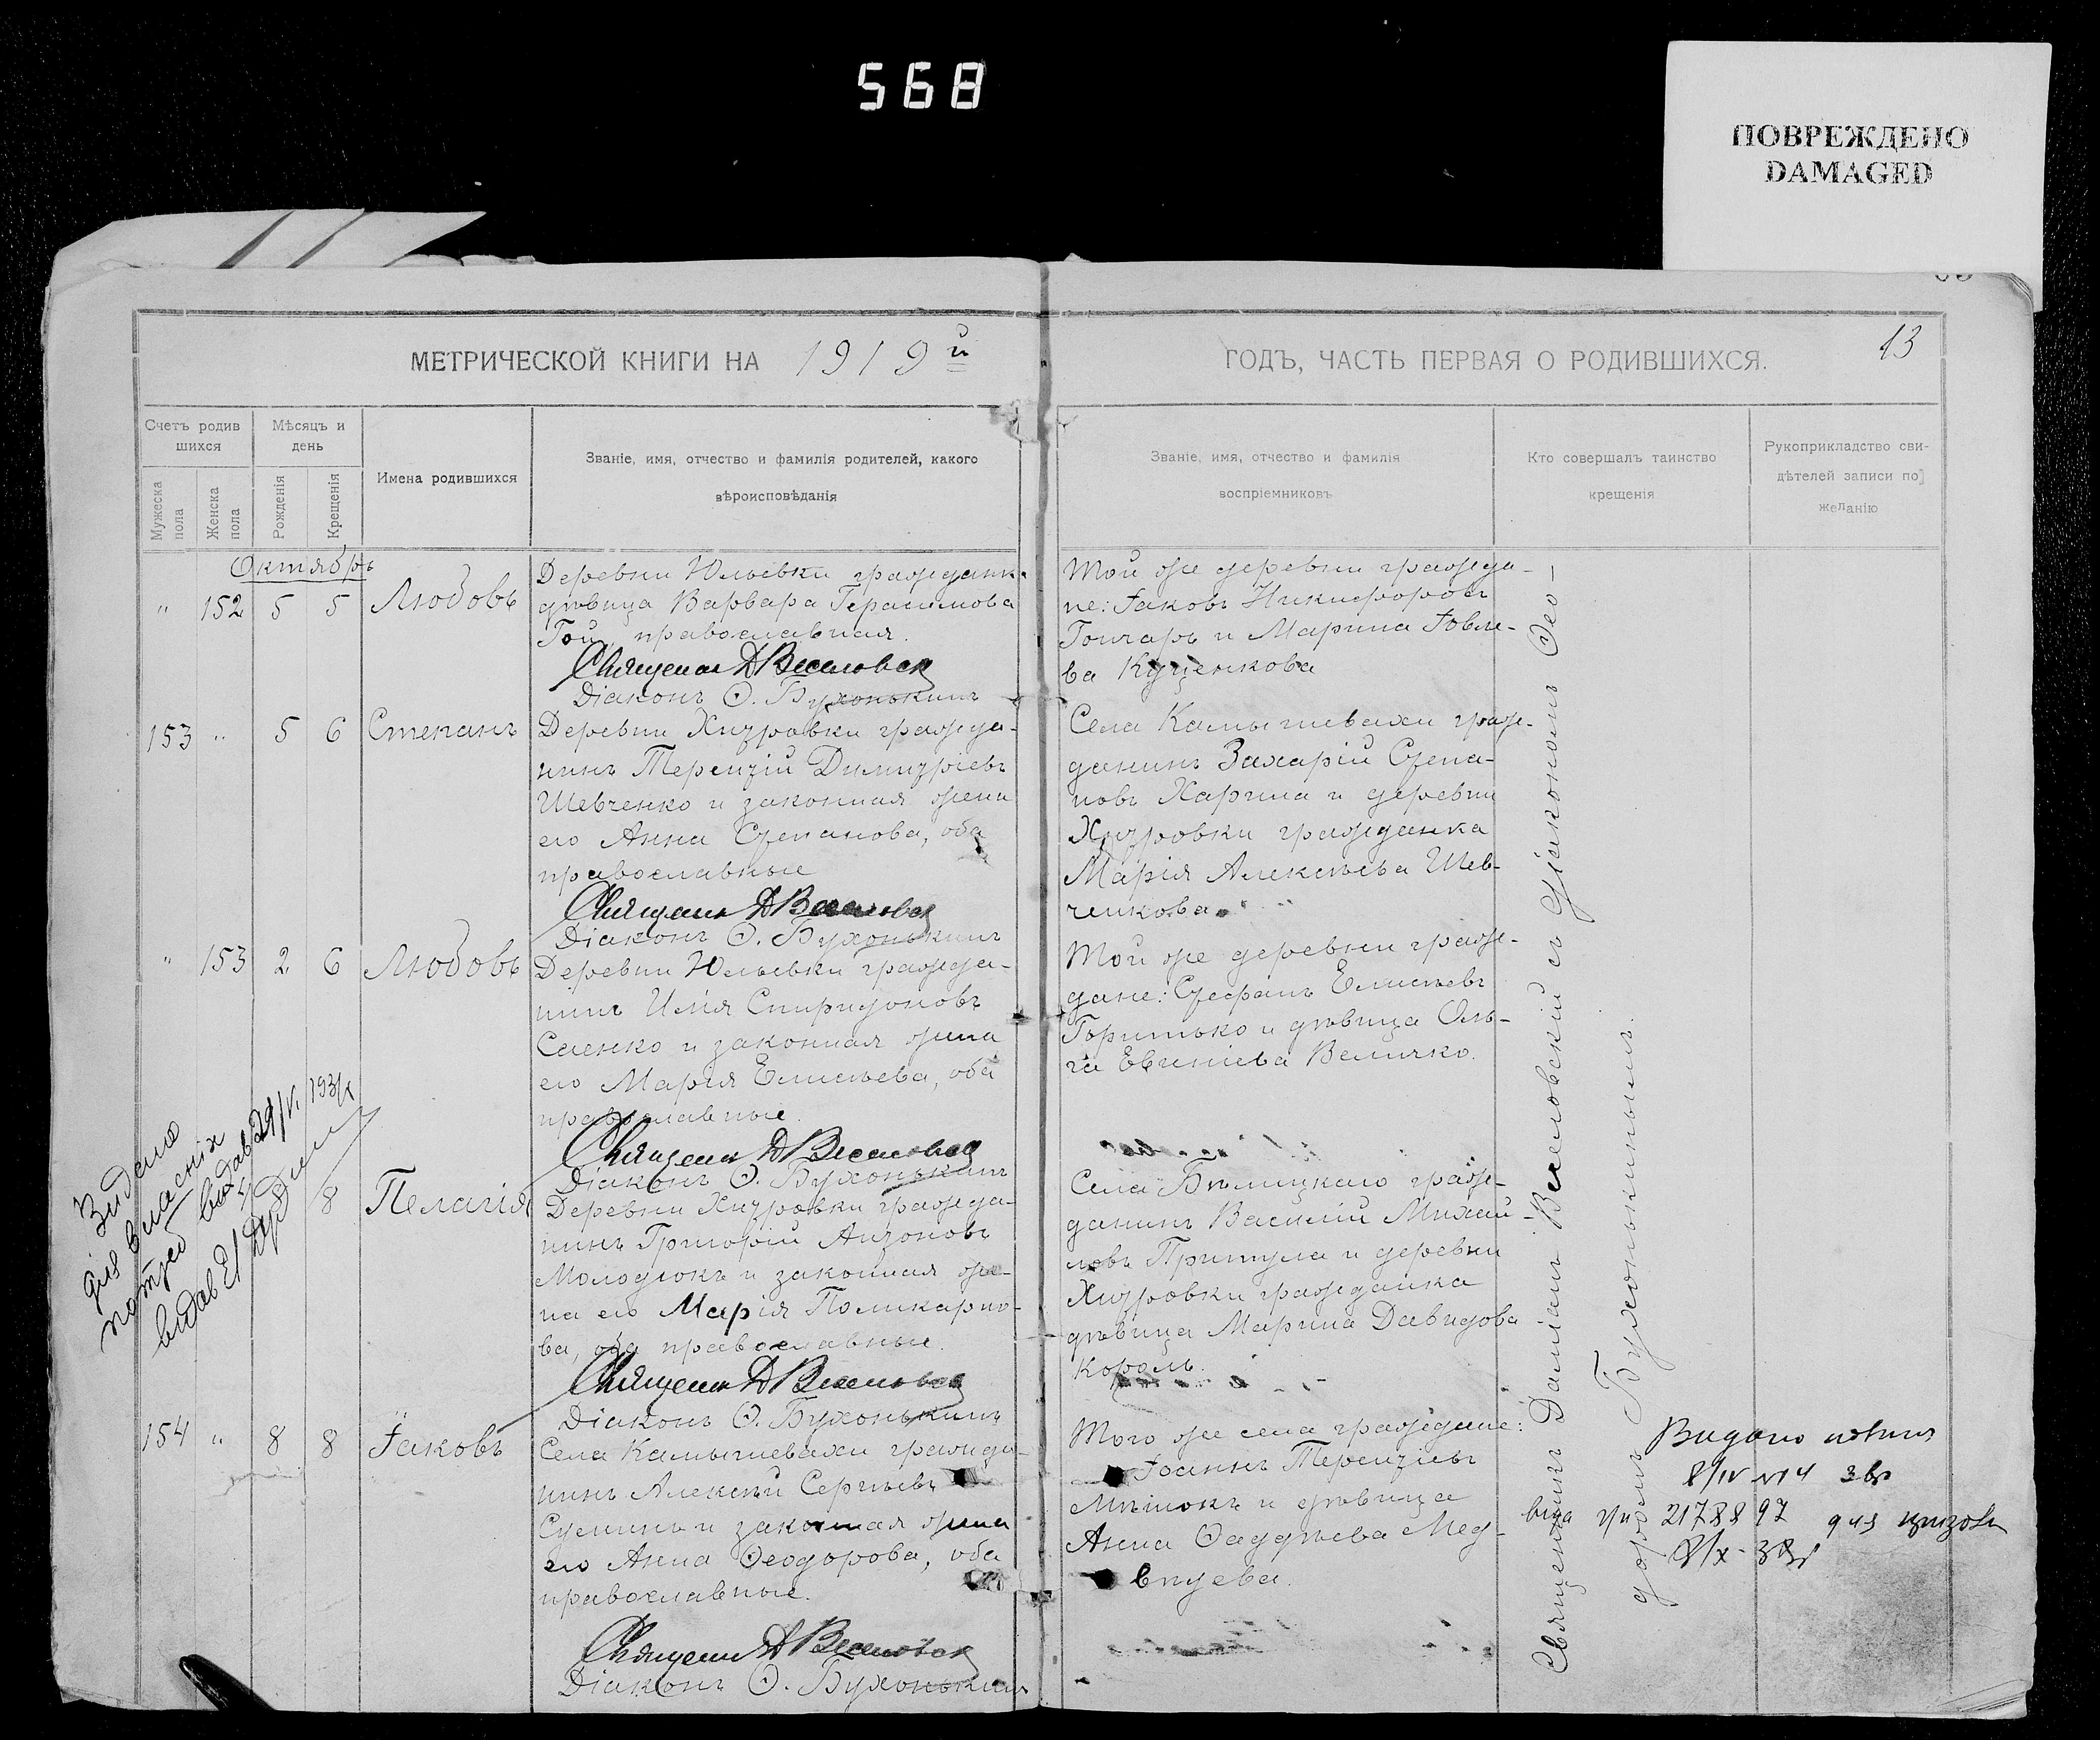 568
ПОВРЕЖДЕНО
DAMAGED
МЕТРИЧЕСКОЙ КНИГИ НА 1919й
ГОДЪ, ЧАСТЬ ПЕРВАЯ О РОДИВШИХСЯ.
13
Счетъ родив
шихся
Мужеска
пола
Женска
пола
Мѣсяцъ и
день
Рожденія
Крещенія
Имена родившихся
Званіе, имя, отчество и фамилія родителей, какого
вѣроисповѣданія
Званіе, имя, отчество и фамилія
воспріемниковъ
Кто совершалъ таинство
крещенія
Рукоприкладство сви-
дѣтелей записи по
желанію
Октябрь
" 152 5 5 Любовь
Деревни Юльевки гражданк.
дѣвица Варвара Герасимова
Гой, православная.
Діаконъ Ѳ. Бухонькинъ
Той же деревни гражда-
не: Іаковъ Никифоровъ
Гончаръ и Марина Іовле-
ва Куценкова
153 " 5 6 Степанъ
Деревни Хитровки гражда-
нинъ Терентій Димитріевъ
Шевченко и законная жена
его Анна Степанова, оба
православные
Діаконъ Ѳ. Бухонькинъ
Села Камышевахи граж-
данинъ Захарій Степа-
новъ Харина и деревни
Хитровки гражданка
Марія Алексѣева Шев-
ченкова
" 153 2 6 Любовь
Деревни Юльевки гражда-
нинъ Илія Спиридоновъ
Саенко и законная жена
его Марія Елисѣева, оба
православные.
Діаконъ Ѳ. Бухонькинъ
Той же деревни граж-
дане: Стефанъ Елисѣевъ
и дѣвица Оль-
га Евгеніева Величко.
8 8 Пелагія
Деревни Хитровки гражда-
нинъ Григорій Антоновъ
Молодюкъ и законная же-
на его Марія Поликарпо-
ва, оба православные.
Діаконъ Ѳ. Бухонькинъ
Села Бѣлицкаго граж-
данинъ Василій Михай-
ловъ Притула и деревни
Хитровки гражданка
дѣвица Марина Давидова
Король.
154 " 8 8 Іаковъ
Села Камышевахи гражда-
нинъ Алексѣй Сергѣевъ
и законная жена
его Анна Ѳеодорова, оба
православные.
Діаконъ Ѳ. Бухонькинъ
Того же села граждане:
Іоаннъ Терентіевъ
Мѣшокъ и дѣвица
Анна Ѳаддѣева Мед-
вѣдева.
Священникъ Даміанъ Веселовскій съ діакономъ Ѳео-
доромъ Бухонькинымъ.
Видано
для власніх
потреб
Видано
217889